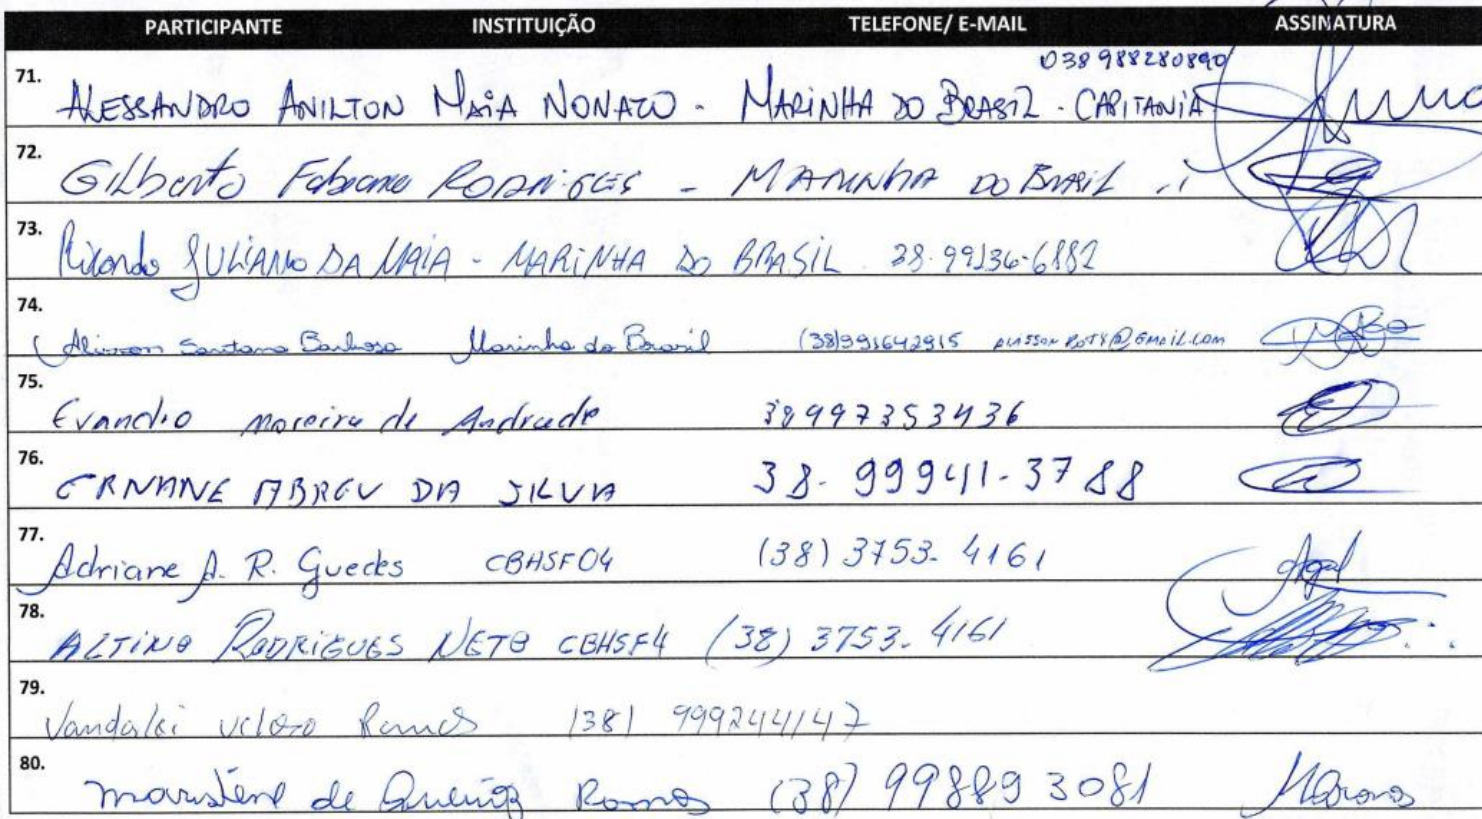 PARTICIPANTE INSTITUIÇÃO TELEFONE/ E-MAIL ASSINATURA
038 988280890
71. ALESSANDRO ANILTON MAIA NONATO - MARINHA DO BRASIL - CAPITANIA
72. Gilberto Fabiano RODRIGES - MARINHA DO BRASIL
73. Ricardo JULIANO DA MAIA - MARINHA DO BRASIL 38-99136-6882
74. Alisson Santana Barbosa Marinha do Brasil (38)991642915
75. Evandro moreira de Andrade 38997353436
76. ERNANE ABREU DA SILVA 38-99941-3788
77. Adriane A. R. Guedes CBHSF04 (38) 3753-4161
78. ALTINO RODRIGUES NETO CBHSF4 (38) 3753-4161
79. Vandalei veloso Ramos (38) 999244147
80. de Queiroz Ramos (38) 99889 3081